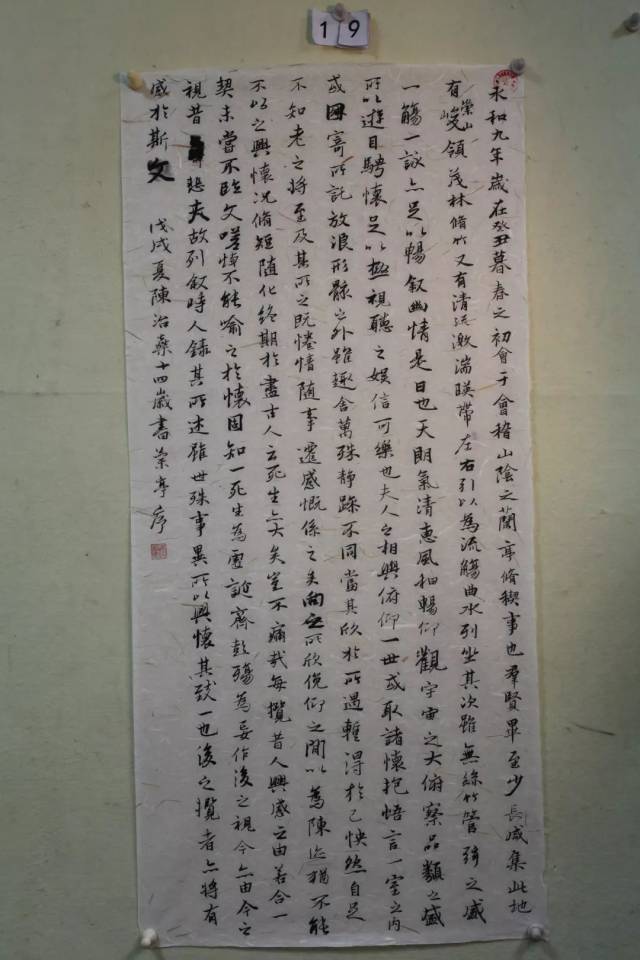 19
永和九年歲在癸丑暮春之初會于會稽山陰之蘭亭脩稧事也羣賢畢至少長咸集此地
有崇山峻領茂林脩竹又有清流激湍暎帶左右引以為流觴曲水列坐其次雖無絲竹管弦之盛
一觴一詠亦足以暢叙幽情是日也天朗氣清惠風和暢仰觀宇宙之大俯察品類之盛
所以遊目騁懷足以極視聽之娛信可樂也夫人之相與俯仰一世或取諸懷抱悟言一室之內
或因寄所託放浪形骸之外雖趣舍萬殊静躁不同當其欣於所遇蹔得於己怏然自足
不知老之將至及其所之既惓情隨事遷感慨係之矣向之所欣俛仰之間以為陳迹猶不能
不以之興懷況脩短隨化終期於盡古人云死生亦大矣豈不痛哉每攬昔人興感之由若合一
契未嘗不臨文嗟悼不能喻之於懷固知一死生為虛誕齊彭殤為妄作後之視今亦由今之
視昔悲夫故列叙時人錄其所述雖世殊事異所以興懷其致一也後之攬者亦將有
感於斯文 戊戌夏陳治燊十四歲書蘭亭序